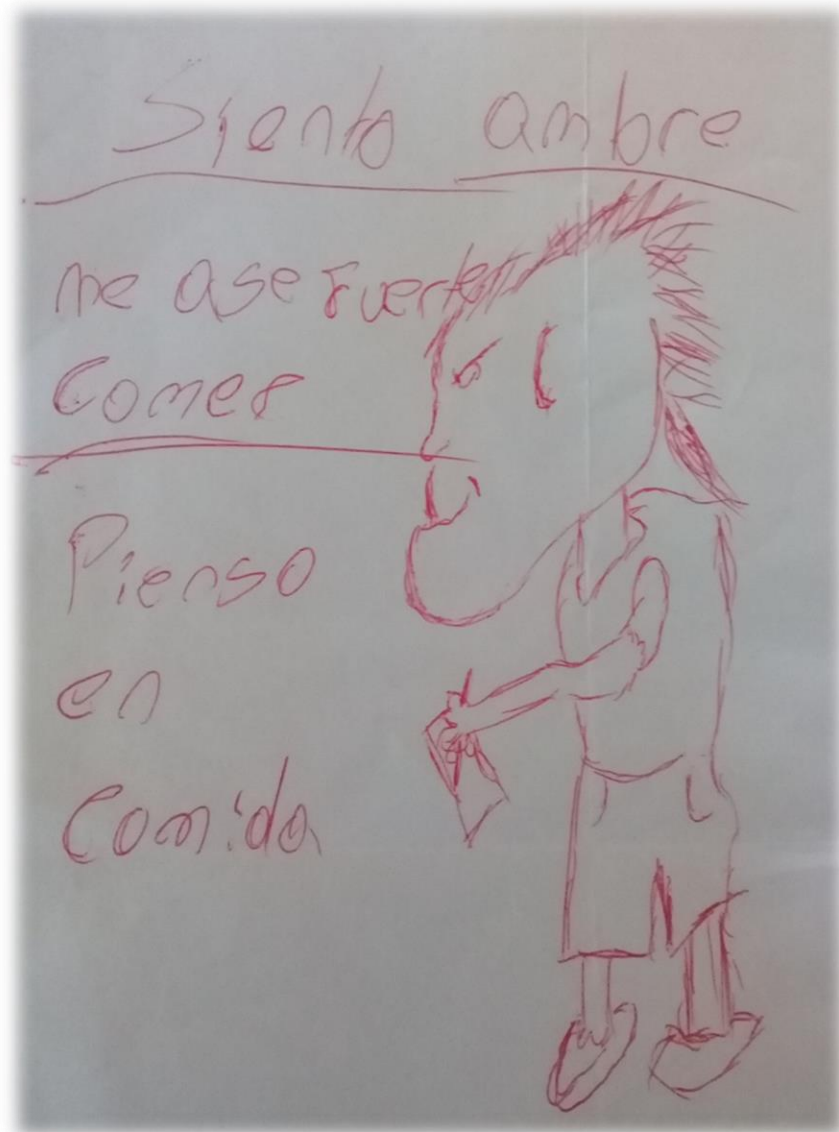 Siento ambre
me ase fuerte
Comer
Pienso
en
Comida